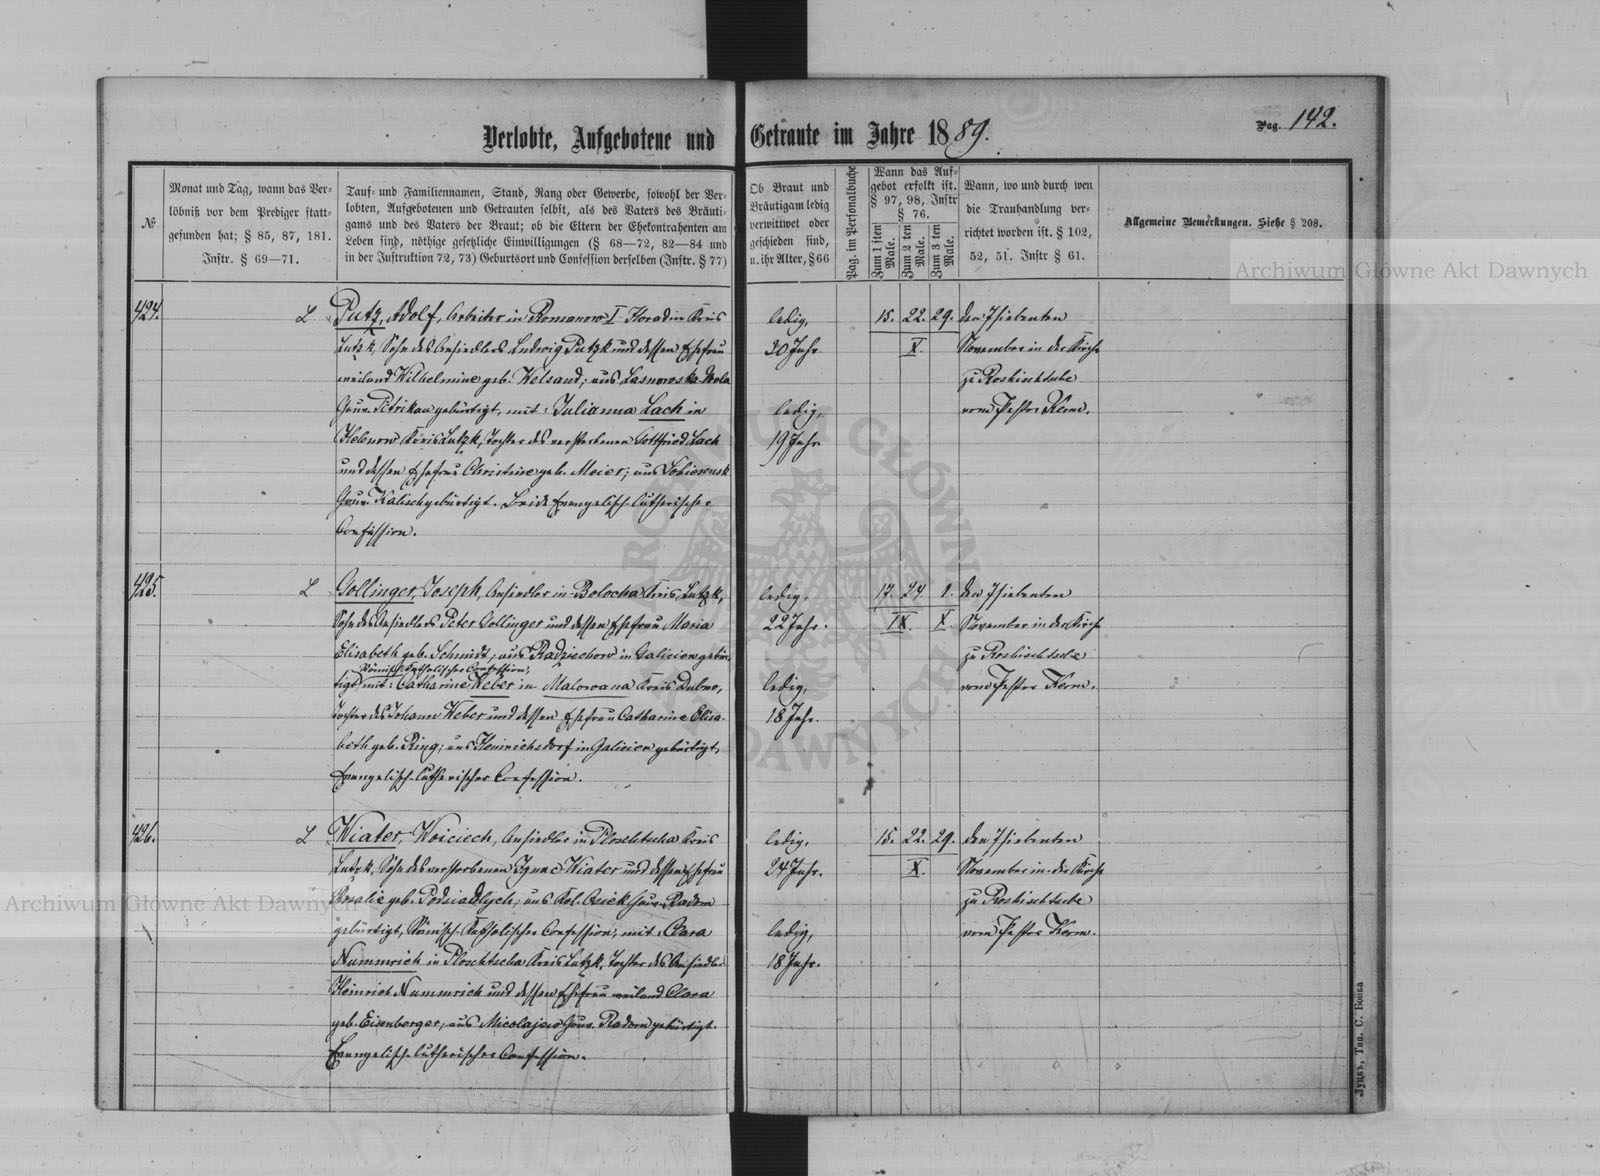 Verlobte, Aufgebotene und Getraute im Jahre 1889.
Pag. 142.
№
Monat und Tag, wann das Ver-
löbniß vor dem Prediger statt-
gefunden hat; § 85, 87, 181.
Instr. § 69—71.
Tauf- und Familiennamen, Stand, Rang oder Gewerbe, sowohl der Ver-
lobten, Aufgebotenen und Getrauten selbst, als des Vaters des Bräuti-
gams und des Vaters der Braut; ob die Eltern der Ehekontrahenten am
Leben sind, nöthige gesetzliche Einwilligungen (§ 68—72, 82—84 und
in der Instruktion 72, 73) Geburtsort und Confession derselben (Instr. § 77)
Ob Braut und
Bräutigam ledig
verwittwet oder
geschieden sind,
u. ihr Alter, § 66
Pag. im Personalbuche
Wann das Auf-
gebot erfolkt ist.
§ 97, 98, Instr
§ 76.
Zum 1 sten Male.
Zum 2 ten Male.
Zum 3 ten Male.
Wann, wo und durch wen
die Trauhandlung ver-
richtet worden ist. § 102,
52, 51. Instr § 61.
Allgemeine Bemerkungen. Siehe § 208.
424.
L
Putz, Adolf, Arbeiter in Romanow I Horadin Kreis
Lutzk, Sohn des Ansiedlers Ludwig Putzk und dessen Ehefrau
weiland Wilhelmine geb. Welsand; aus Lasnowska-Wola
Gouv. Petrikau gebürtigt, mit: Julianna Lach in
Helenow Kreis Lutzk, Tochter des verstorbenen Gottfried Lach
und dessen Ehefrau Christine geb. Meier; aus
Gouv. Kalisch gebürtigt. Beide Evangelisch-lutherischer
Confession.
ledig,
30 Jahr
ledig,
19 Jahr
15. 22. 29.
X.
den 7 siebenten
November in der Kirche
zu Roschischtsche
vom Pastor Kerm.
425.
L
Gollinger, Joseph, Ansiedler in Bolocha Kreis Lutzk,
Sohn des Ansiedlers Peter Gollinger und dessen Ehefrau Maria
Elisabeth geb. Schmidt; aus Radziechow in Galicien gebür-
Römisch-Katholischer Confession;
tigt mit: Catharine Weber in Malowana Kreis Dubno,
Tochter des Johann Weber und dessen Ehefrau Catharine Elisa-
beth geb. Ring; aus Heinrichsdorf in Galicien gebürtigt,
Evangelisch-lutherischer Confession.
ledig,
22 Jahr.
ledig,
18 Jahr.
17. 24. 1.
IX. X.
den 7 siebenten
November in der Kirche
zu Roschischtsche
vom Pastor Kerm.
426.
L
Wiater, Woiciech, Ansiedler in Ploschtscha Kreis
Lutzk, Sohn des verstorbenen Ignac Wiater und dessen Ehefrau
Rosalie geb. Podsiadlych; aus Kol. Osiek Gouv. Radom
gebürtigt, Römisch-Katholischer Confession; mit: Clara
Nummrich in Ploschtscha Kreis Lutzk, Tochter des Ansiedlers
Heinrich Nummrich und dessen Ehefrau weiland Clara
geb. Eisenberger; aus Micolajew Gouv. Radom gebürtigt.
Evangelisch-lutherischer Confession.
ledig,
24 Jahr.
ledig,
18 Jahr.
15. 22. 29.
X.
den 7 siebenten
November in der Kirche
zu Roschischtsche
vom Pastor Kerm.
Луцкъ, Тип. С. Бокка
Archiwum Główne Akt Dawnych
Archiwum Główne Akt Dawnych
ARCHIWUM GŁÓWNE AKT DAWNYCH